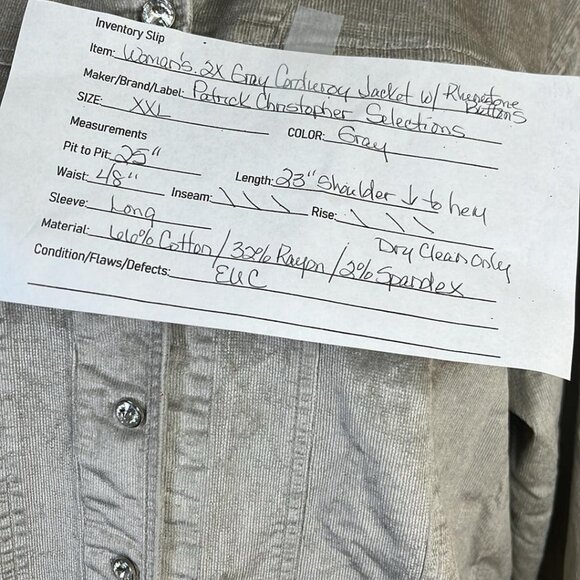 Inventory Slip
Item: Woman's 2X Gray Corduroy Jacket w/ Rhinestone Buttons
Maker/Brand/Label: Patrick Christopher Selections
SIZE: XXL COLOR: Gray
Measurements
Pit to Pit: 25" Length: 23" Shoulder ↓ to hem
Waist: 48" Inseam: \ \ \ Rise: \ \ \
Sleeve: Long Dry Clean Only
Material: 66% Cotton / 32% Rayon / 2% Spandex
Condition/Flaws/Defects: EUC